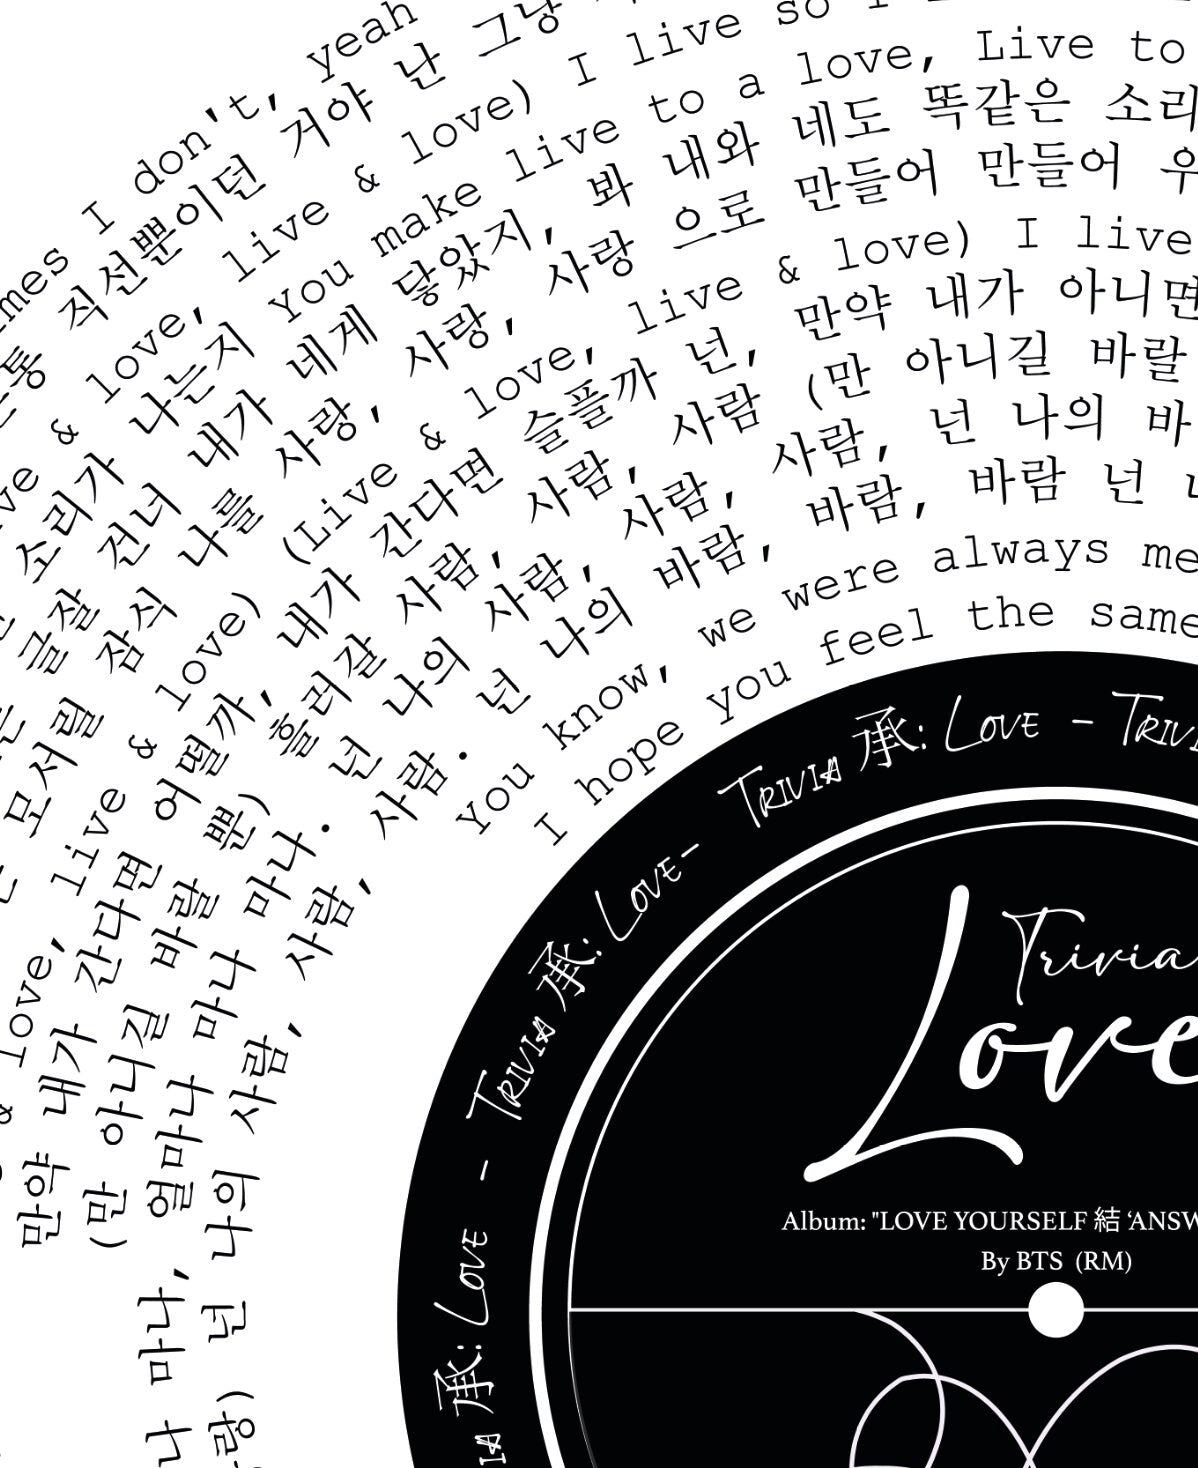 I don't, yeah
통 직선뿐이던 거야 난 그냥
& love, live & love) I live so I
소리가 나는지 You make live to a love, Live to
글잘 건너 내가 네게 닿았지, 봐 내와 네도 똑같은 소리
모서릴 잠식 나를 사랑, 사랑, 사랑 으로 만들어 만들어 우
love, live & love) (Live & love, live & love) I live
만약 내가 간다면 어떨까, 내가 간다면 슬플까 넌, 만약 내가 아니면
(만 아니길 바랄 뿐) 흘러갈 사람, 사람, 사람 (만 아니길 바랄
얼마나 마나 마나. 넌 나의 사람, 사람, 사람, 넌 나의 바
나 마나, 넌 나의 사람, 사람, 사람. 넌 나의 바람, 바람, 바람 넌
You know, we were always me
I hope you feel the same
Trivia 承: Love - Trivia 承: Love - Trivia 承: Love -
Trivia
Love
Album: "LOVE YOURSELF 結 ‘ANSW
By BTS (RM)